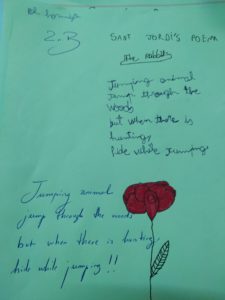 2.B
SANT JORDI'S POEM
the Rabbits
Jumping animal
jump through the
woods
but when there is
hunting,
hide while jumping
Jumping animal
jump through the woods
but when there is hunting,
hide while jumping !!